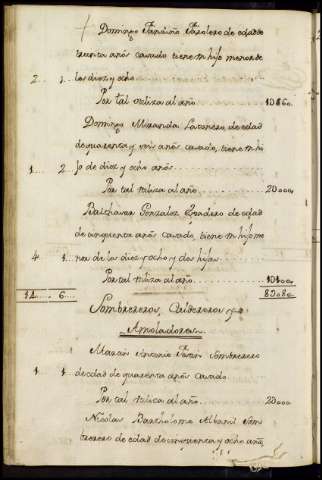 Domingo Farolero de edad de
treinta años casado tiene un hijo menor de
2 1 los diez y ocho
Por tal utiliza al año
Domingo Miranda Latonero de edad
de quarenta y seis años casado, tiene un hi
1 2 jo de diez y ocho años
Por tal utiliza al año 20000
Balthasar Gonzalez de edad
de cinquenta años casado, tiene un hijo me
4 1 nor de los diez y ocho y dos hijas
Por tal utiliza al año
14 6
Sombrereros, Caldereros y
Amoladores
Marcos Antonio Sombrerero
1 1 de edad de quarenta años casado
Por tal utiliza al año 20000
Nicolas Bartholome Albanil Som
brerero de edad de cinquenta y ocho años